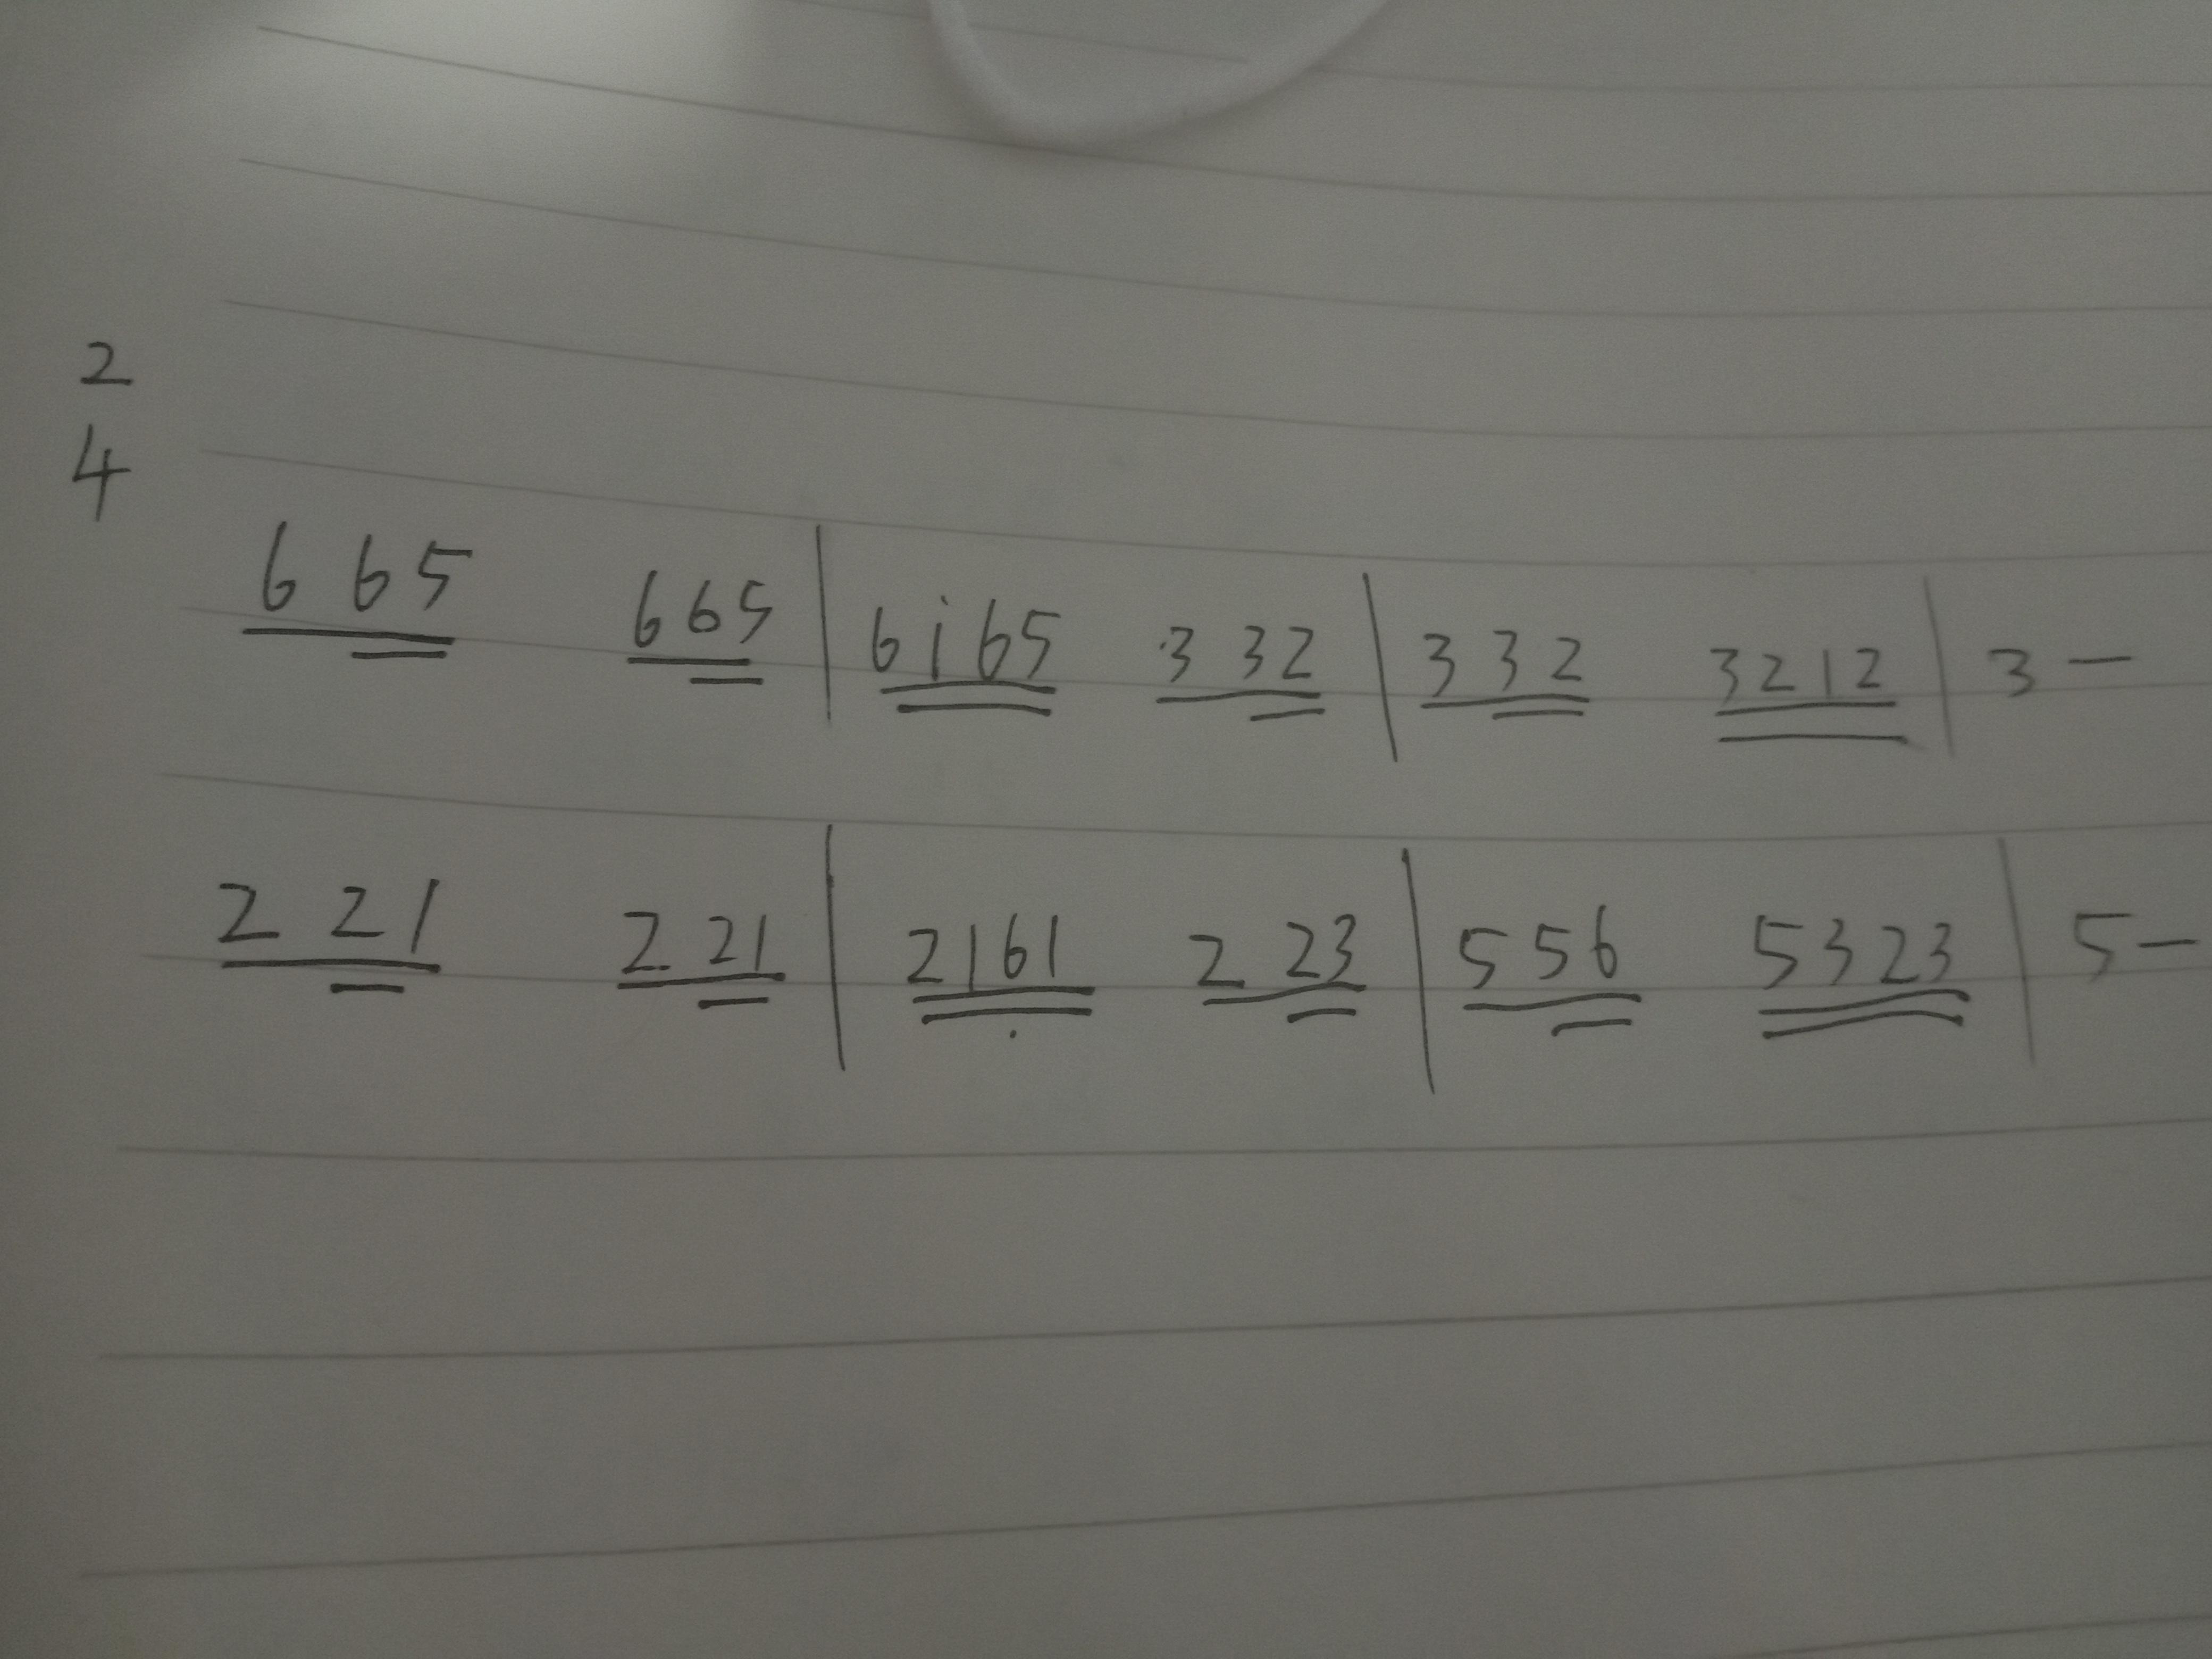 2
4
6 65 665 | 6i65 3 32 | 3 32 3212 | 3 –
2 21 2 21 | 2161 2 23 | 5 56 5323 | 5 –